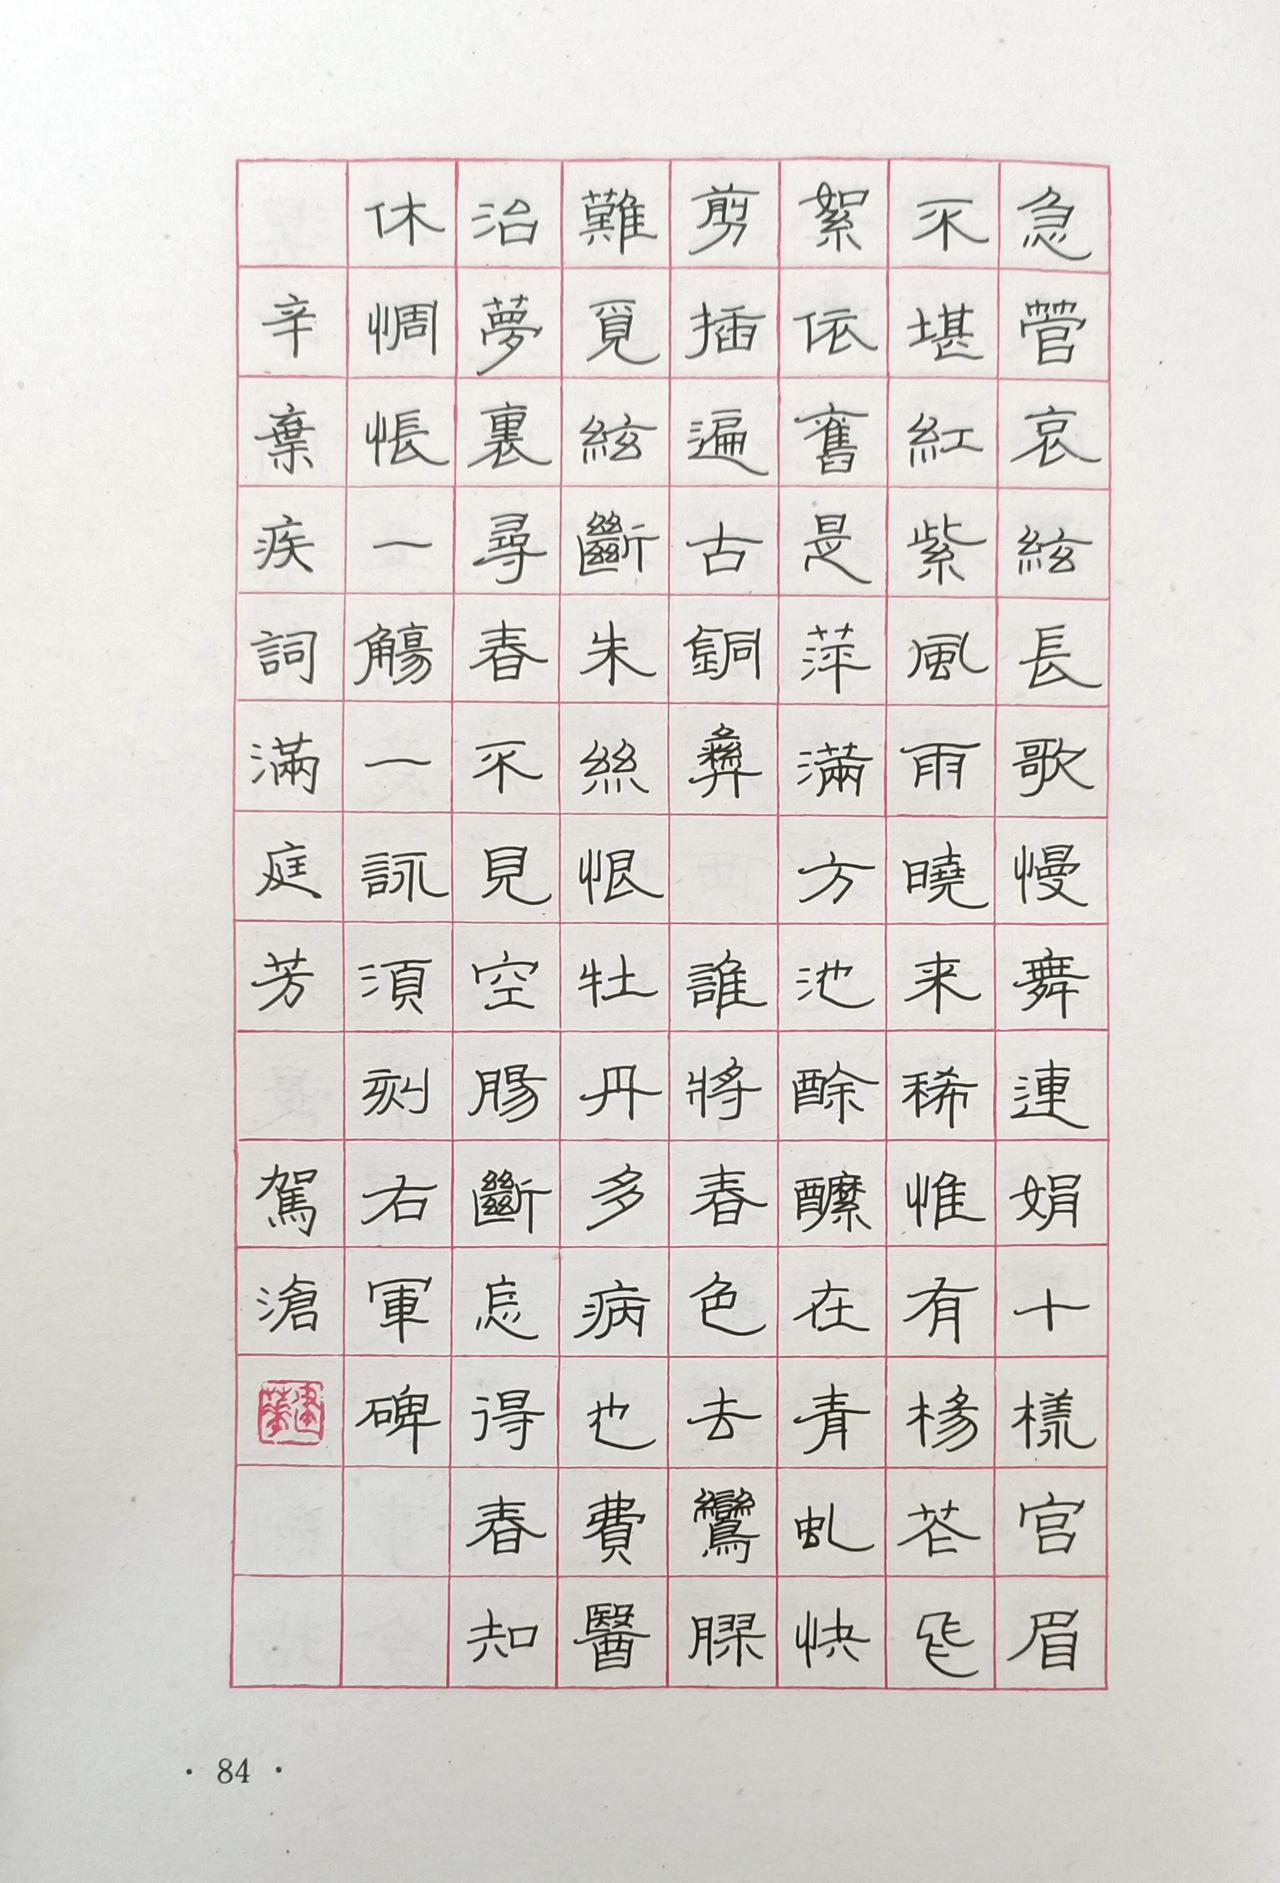 急管哀絃長歌慢舞連娟十樣宮眉
不堪紅紫風雨曉来稀惟有楊花飛
絮依舊是萍滿方池酴醾在青虬快
剪插遍古銅彝 誰將春色去鸞膠
難覓絃斷朱絲恨牡丹多病也費醫
治夢裏尋春不見空腸斷怎得春知
休惆悵一觴一詠須刻右軍碑
辛棄疾詞滿庭芳 駕滄
· 84 ·